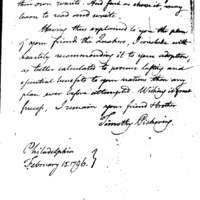 their own wants. And just as above is, every
learn to read and write.
Having thus explained to you the plan
of your friends the Quakers, I conclude with
heartily recommending it to your adoption,
as better calculated to procure lasting and
essential benefit to your nation than any
plan ever before attempted. Wishing it great
success, I remain your friend & brother
Timothy Pickering.
Philadelphia
February 15. 1796. }